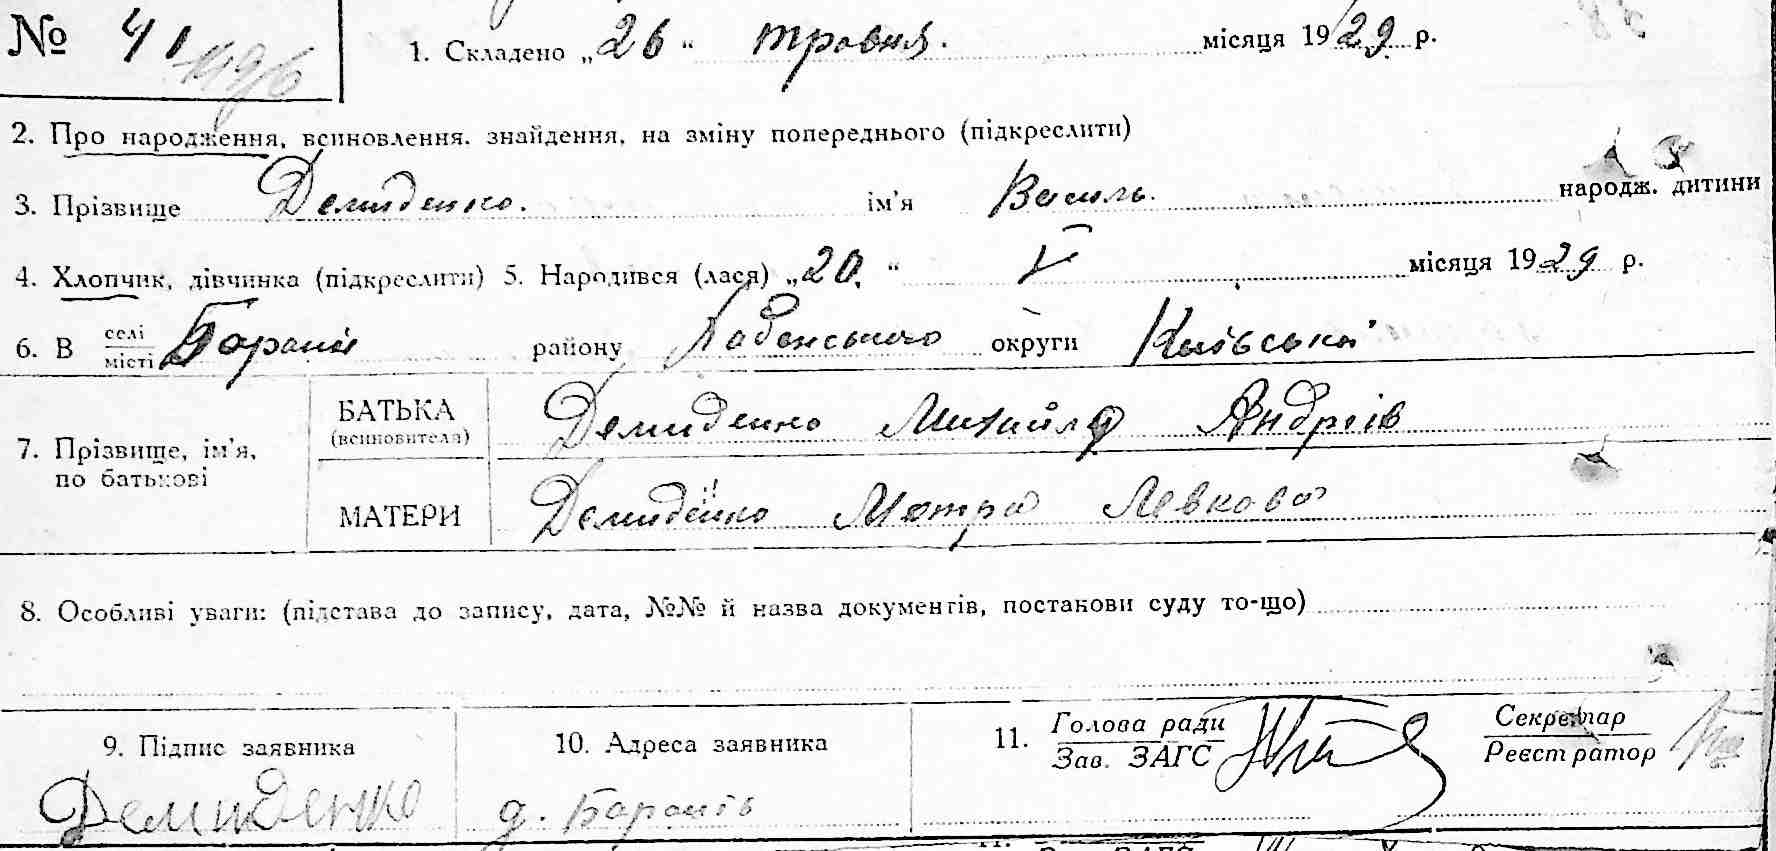 № 41
1. Складено „26“ травня. місяця 1929 р.
2. Про народження, всиновлення. знайдення, на зміну попереднього (підкреслити)
3. Прізвище Демиденко. ім'я Василь. народж. дитини
4. Хлопчик, дівчинка (підкреслити) 5. Народився (лася) „20.“ V місяця 1929 р.
6. В селі місті району округи Київської
7. Прізвище, ім'я, по батькові
БАТЬКА (всиновителя) Демиденко Михайло Андріїв
МАТЕРИ Демиденко Мотря Левкова
8. Особливі уваги: (підстава до запису, дата, №№ й назва документів, постанови суду то-що)
9. Підпис заявника 10. Адреса заявника 11. Голова ради Зав. ЗАГС Секретар Реєстратор
Демиденко